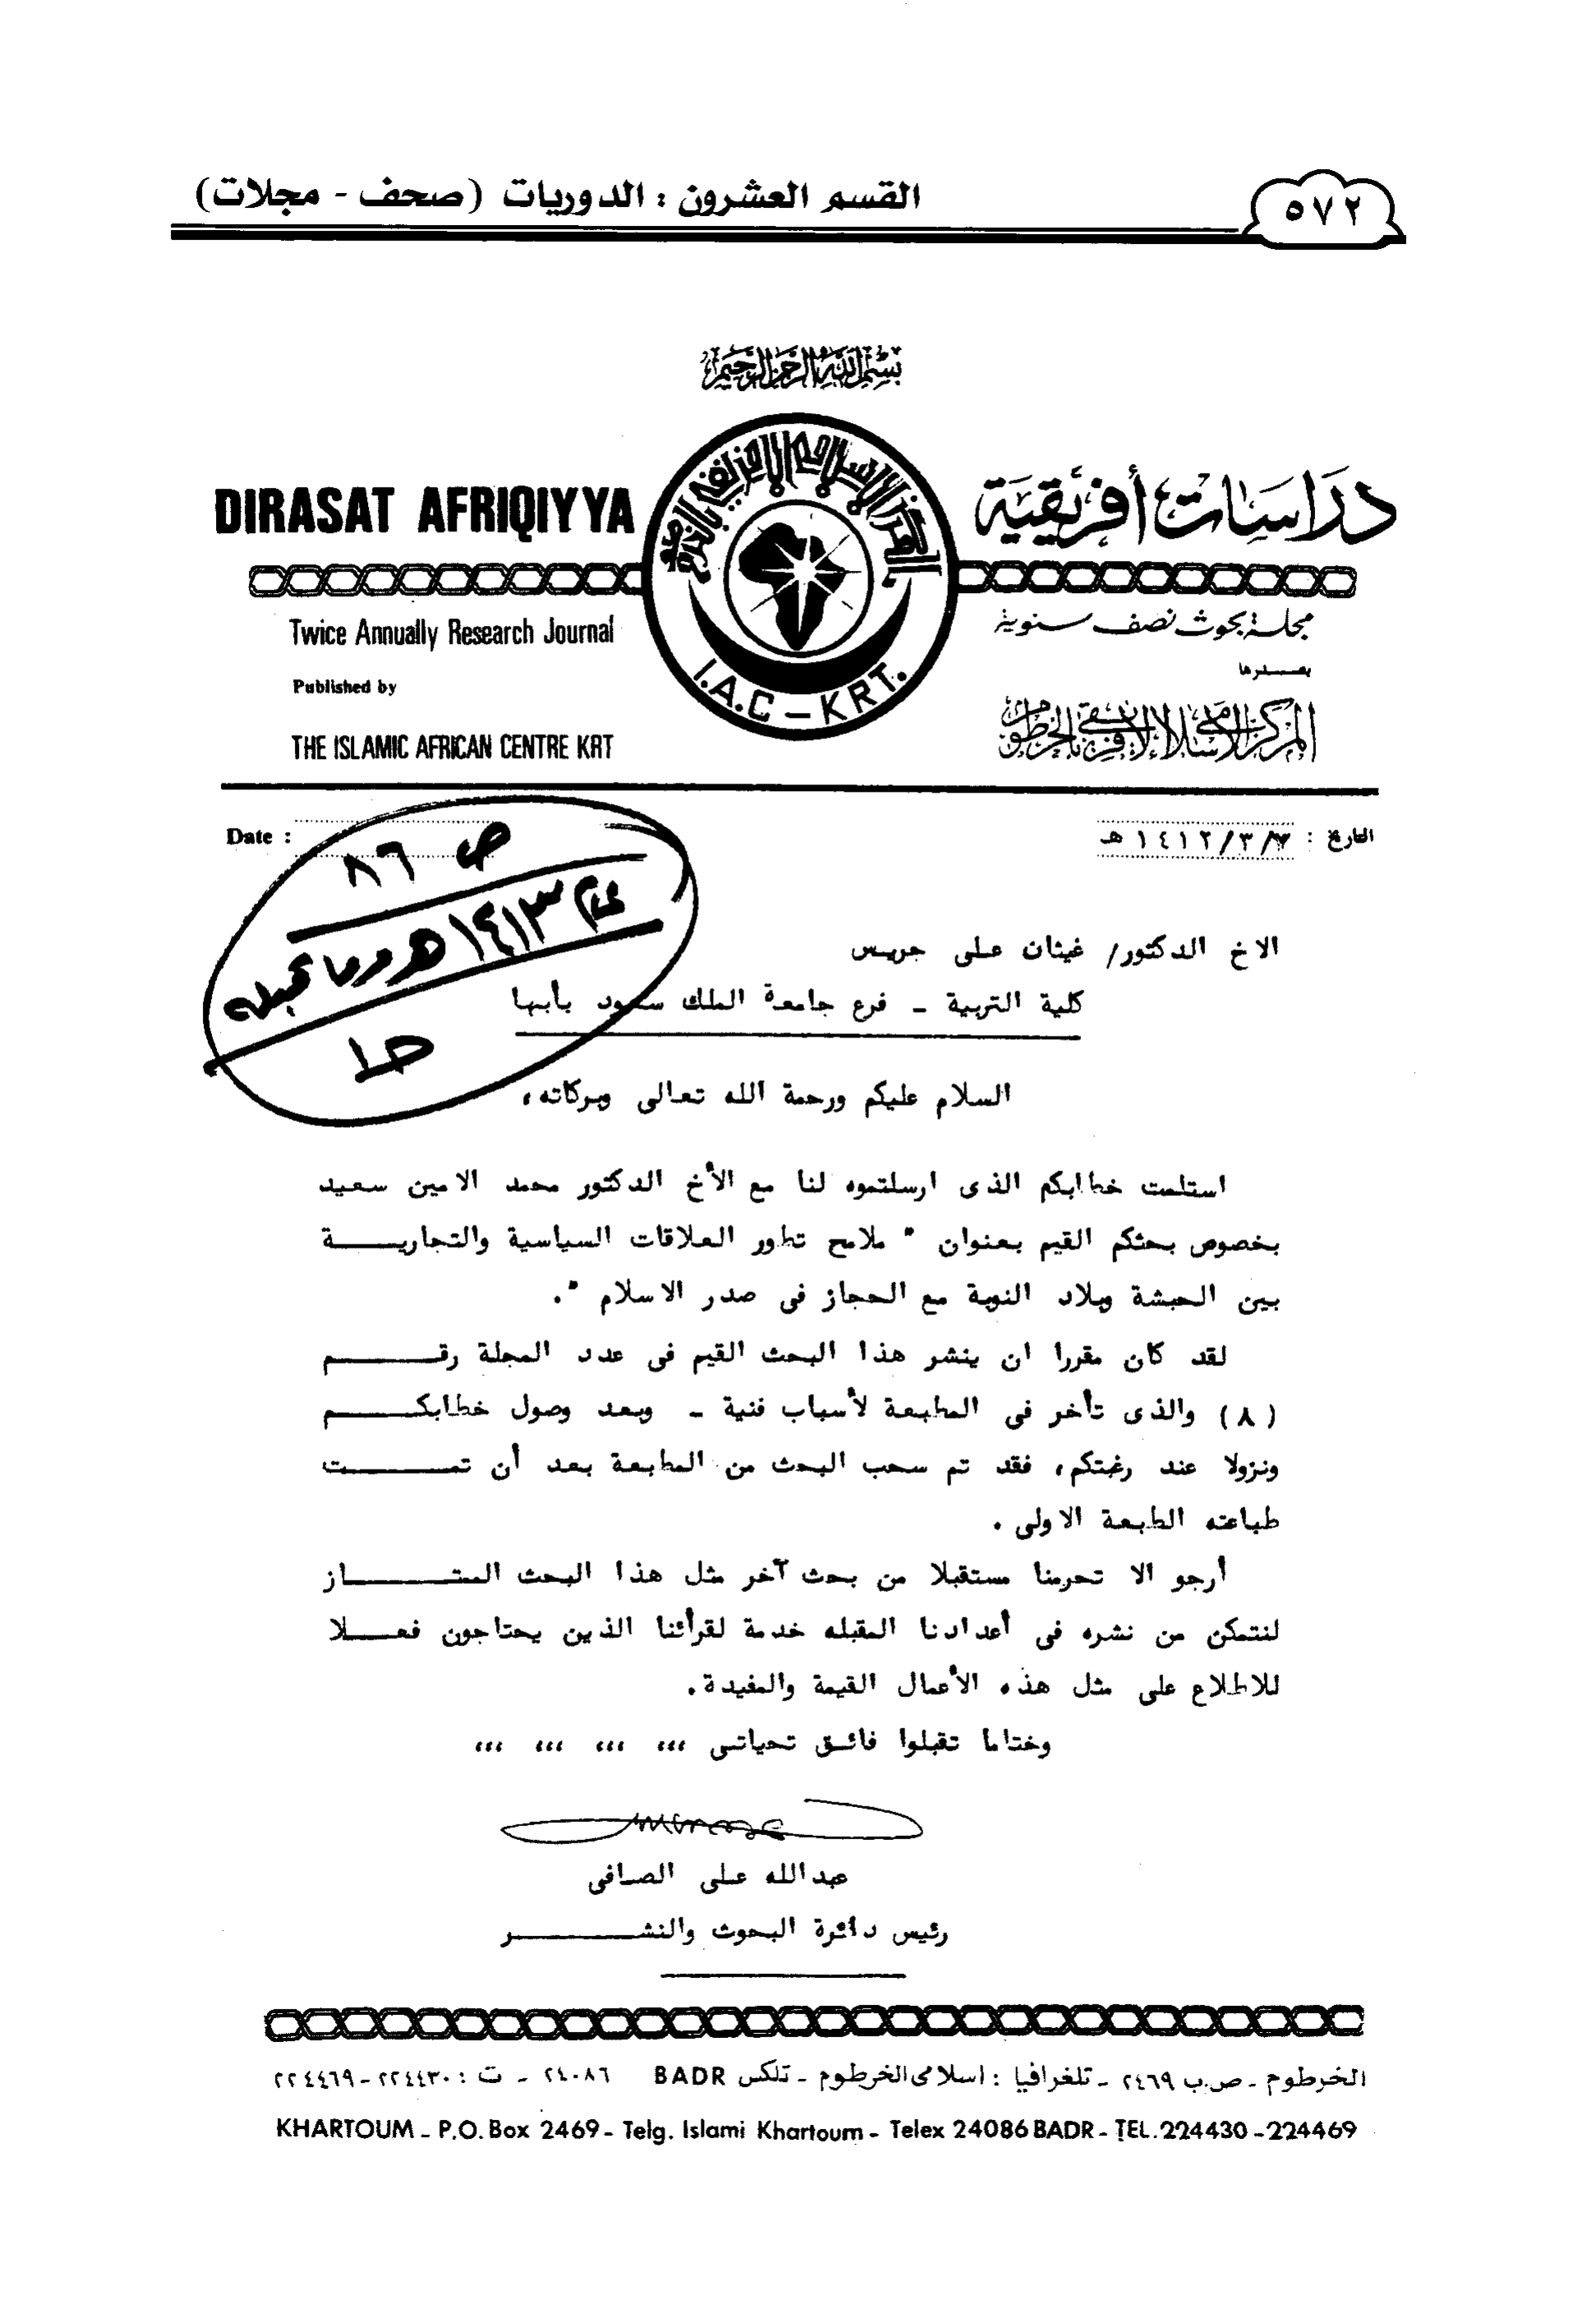 القسم العشرون : الدوريات (صحف - مجلات)
٥٧٢
بسم الله الرحمن الرحيم
DIRASAT AFRIQIYYA
دراسات أفريقية
المركز الإسلامي الإفريقي بالخرطوم
I.A.C - KRT.
Twice Annually Research Journal
Published by
THE ISLAMIC AFRICAN CENTRE KRT
مجلة بحوث نصف سنوية
يصدرها
المركز الإسلامي الأفريقي بالخرطوم
Date :
التاريخ : /٣/١٤١٢ هـ
ص ٨٦
١٤١٣هـ وما
الاخ الدكتور/ غيثان على جريس
كلية التربية - فرع جامعة الملك سعود بأبها
السلام عليكم ورحمة الله تعالى وبركاته،
استلمت خطابكم الذى ارسلتموه لنا مع الأخ الدكتور محمد الامين سعيد
بخصوص بحثكم القيم بعنوان " ملامح تطور العلاقات السياسية والتجاريـــــة
بين الحبشة وبلاد النوبة مع الحجاز فى صدر الاسلام ".
لقد كان مقررا ان ينشر هذا البحث القيم فى عدد المجلة رقـــــم
(٨) والذى تأخر فى المطبعة لأسباب فنية - وبعد وصول خطابكـــــم
ونزولا عند رغبتكم، فقد تم سحب البحث من المطبعة بعد أن تمـــــت
طباعته الطبعة الاولى .
أرجو الا تحرمنا مستقبلا من بحث آخر مثل هذا البحث الممتـــــاز
لنتمكن من نشره فى أعدادنا المقبله خدمة لقرأئنا الذين يحتاجون فعــــلا
للاطلاع على مثل هذه الأعمال القيمة والمفيدة.
وختاما تقبلوا فائـق تحياتـى ،،، ،،، ،،، ،،،
عبدالله على الصافى
رئيس دائرة البحوث والنشـــــر
الخرطوم - ص.ب ٢٤٦٩ - تلغرافيا : اسلامى الخرطوم - تلكس BADR ٢٤٠٨٦ - ت : ٢٢٤٤٣٠-٢٢٤٤٦٩
KHARTOUM - P.O. Box 2469 - Telg. Islami Khartoum - Telex 24086 BADR - TEL. 224430 - 224469